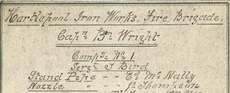 Hartlepool Iron Works, Fire Brigade,
Capt. Wright
Compy. No 1
Sergt. J Bird
Stand Pipe - - McNally
Nozzle - J. Thompson